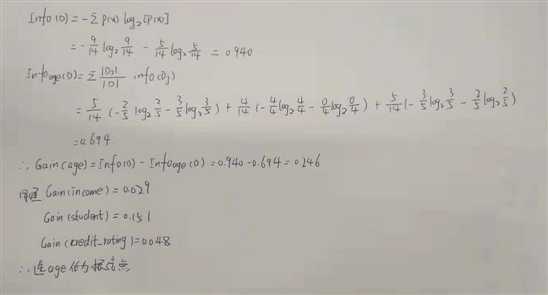 Info(D) = -Σ p(x) log₂[p(x)]
= -9/14 log₂ 9/14 - 5/14 log₂ 5/14 = 0.940
Infoage(D) = Σ |Dj|/|D| info(Dj)
= 5/14 (-2/5 log₂ 2/5 - 3/5 log₂ 3/5) + 4/14 (-4/4 log₂ 4/4 - 0/4 log₂ 0/4) + 5/14 (-3/5 log₂ 3/5 - 2/5 log₂ 2/5)
= 0.694
∴ Gain(age) = Info(D) - Infoage(D) = 0.940 - 0.694 = 0.246
同理 Gain(income) = 0.029
Gain(student) = 0.151
Gain(credit_rating) = 0.048
∴ 选age作为根结点